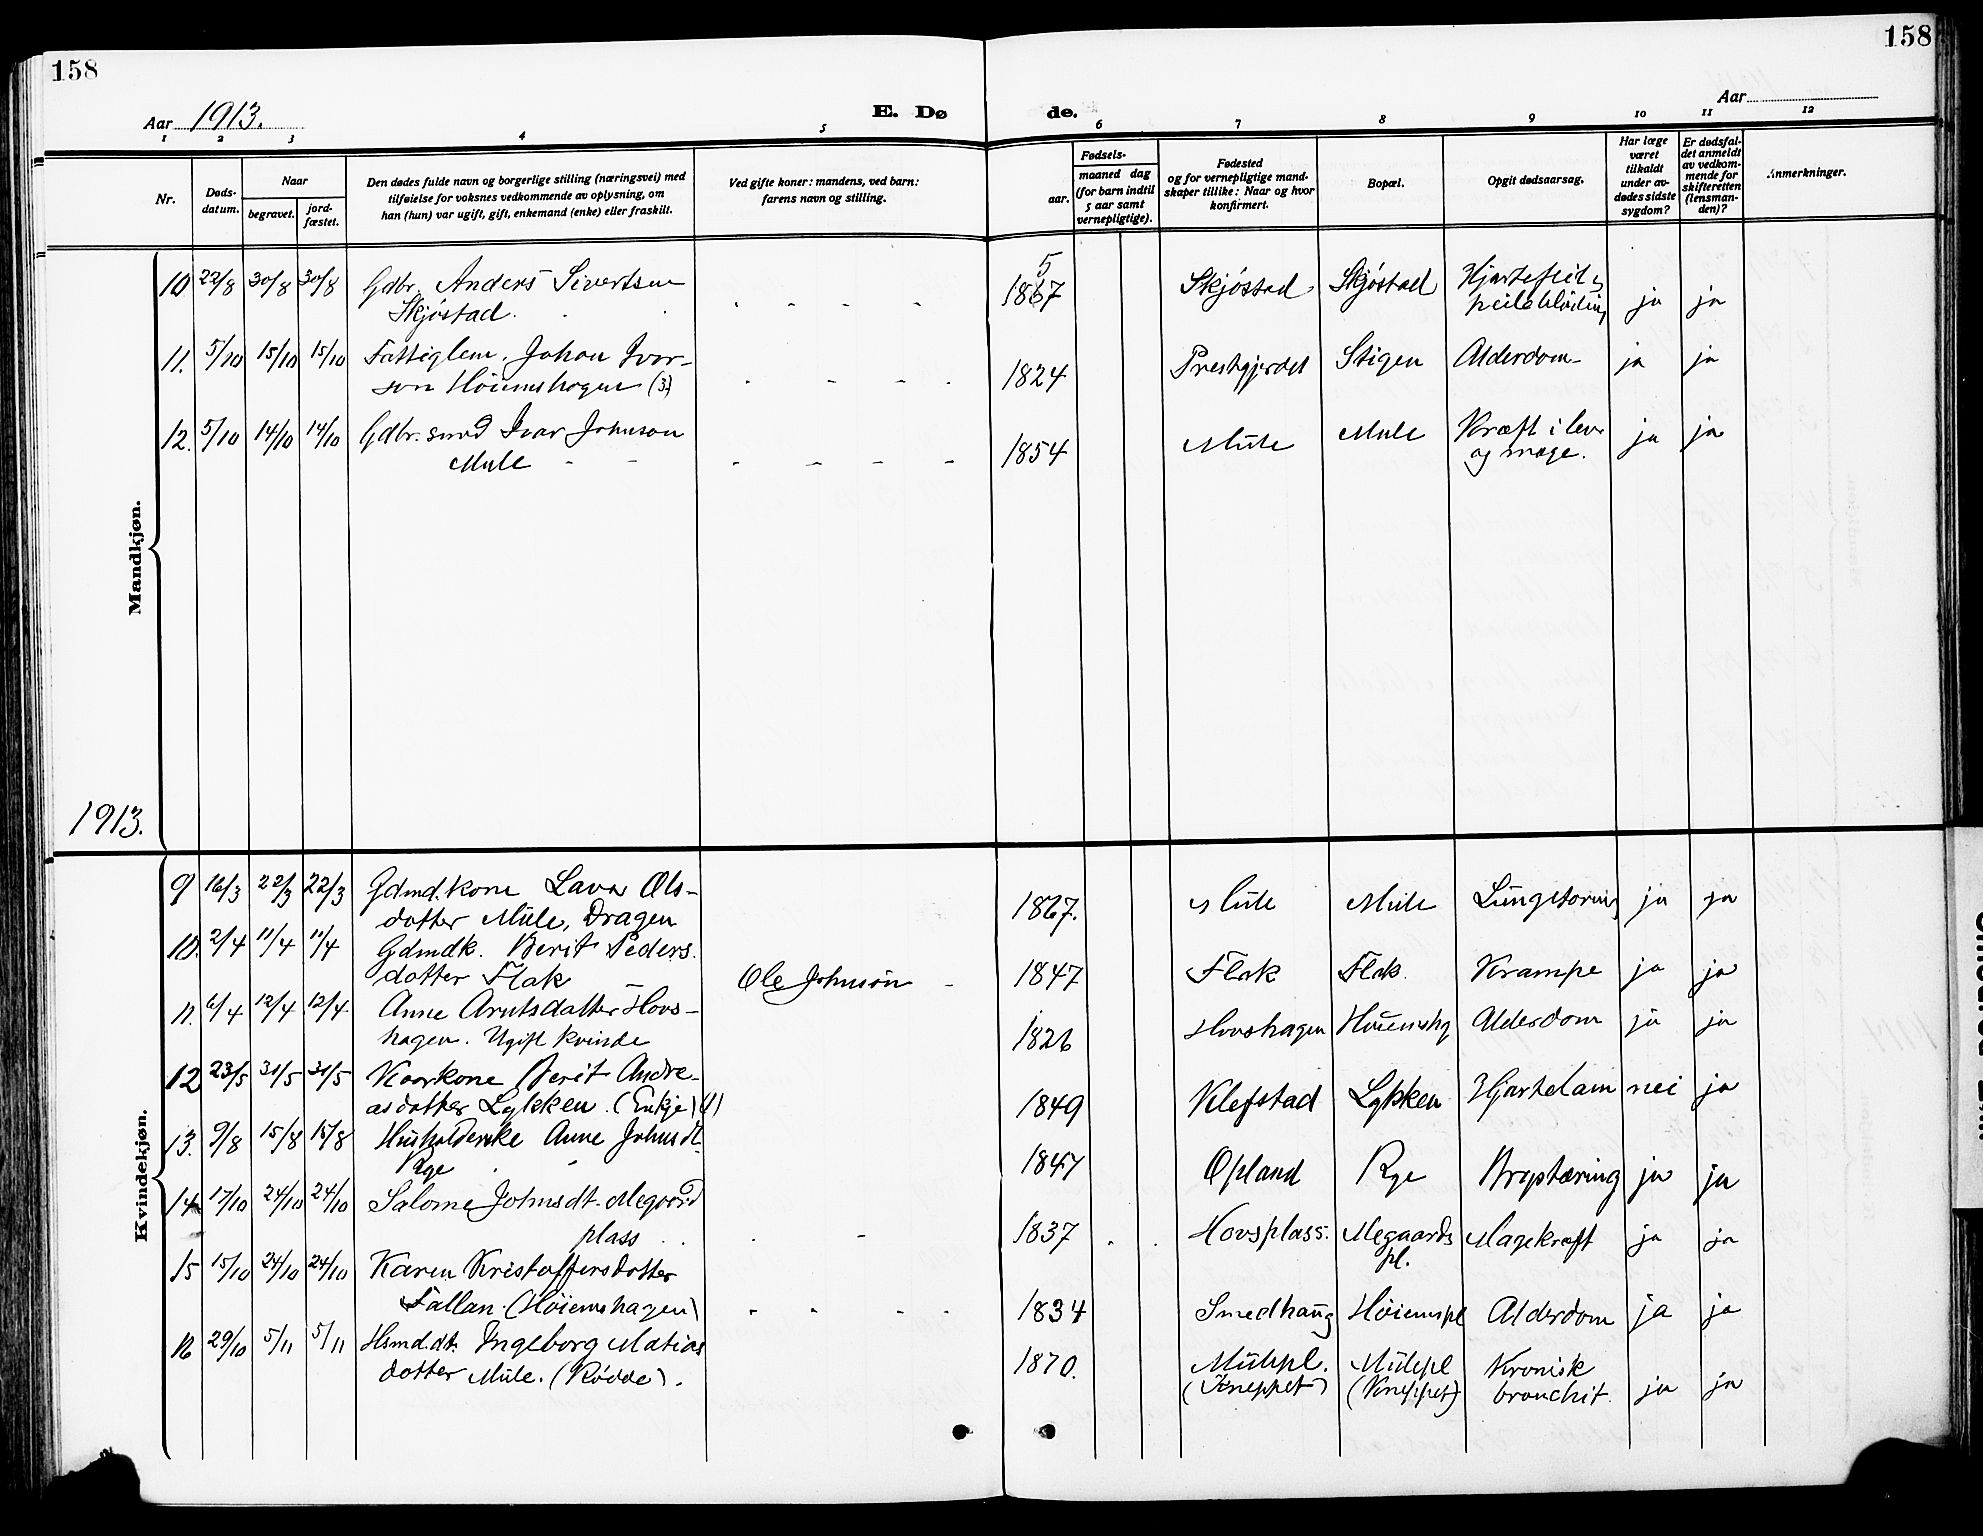 158
158
Aar 1913.
E. Dø
de.
Aar
1 2 3 4 5 6 7 8 9 10 11 12
Nr.
Døds-
datum.
Naar
begravet.
jord-
fæstet.
Den dødes fulde navn og borgerlige stilling (næringsvei) med
tilføielse for voksnes vedkommende av oplysning, om
han (hun) var ugift, gift, enkemand (enke) eller fraskilt.
Ved gifte koner: mandens, ved barn:
farens navn og stilling.
Fødsels-
aar.
maaned dag
(for barn indtil
5 aar samt
vernepligtige).
Fødested
og for vernepligtige mand-
skaper tillike: Naar og hvor
konfirmert.
Bopæl.
Opgit dødsaarsag.
Har læge
været
tilkaldt
under av-
dødes sidste
sygdom?
Er dødsfal-
det anmeldt
av vedkom-
mende for
skifteretten
(lensman-
den)?
Anmerkninger.
Mandkjøn.
10 22/8 30/8 30/8 Gdbr. Anders Sivertsen 5
Skjøstad. 1867 Skjøstad Skjøstad Hjartefeil ja ja
11. 5/10 15/10 15/10 Fattiglem. Johan Ivar-
son Høiemshagen (3) 1824 Prestgjerdet Stigen Alderdom ja ja
12. 5/10 14/10 14/10 Gdbr. Ivar Johnson
Mule 1854 Mule Mule Kræft i lever
og mage. ja ja
1913.
Kvindekjøn.
9 16/3 22/3 22/3 Gdmd.kone Lava Ols-
dotter Mule, Dragen 1867. Mule Mule Lungetæring ja ja
10. 2/4 11/4 11/4 Gdmdk. Berit Peders.
dotter Flak Ole Johnson 1847 Flak Flak. Krampe ja ja
11. 6/4 12/4 12/4 Anne Arntsdatter Hovs-
hagen. Ugift kvinde 1826 Hovshagen Alderdom ja ja
12 23/5 31/5 31/5 Kaarkone Berit Andre-
asdotter Lykken. (Enkje) (4) 1849 Klefstad Lykken Hjartelam nei ja
13. 9/8 15/8 15/8 Husholderske Anne Johnsdt.
Rye 1847 Opland Rye Brystæring ja ja
14 17/10 24/10 24/10 Salome Johnsdt. Megaard
plass 1837 Hovsplass. Megaards
pl. Magekræft ja ja
15 15/10 24/10 24/10 Karen Kristoffersdotter
Fallan. (Høiemshagen) 1834 Smedhaug Høiemspl Alderdom ja ja
16 29/10 5/11 5/11 Hsmd.dt. Ingeborg Matias
dotter Mule. (Rødde). 1870. Mulepl.
(Kneppet) Mulepl
(Kneppet) Kronisk
bronchit. ja ja